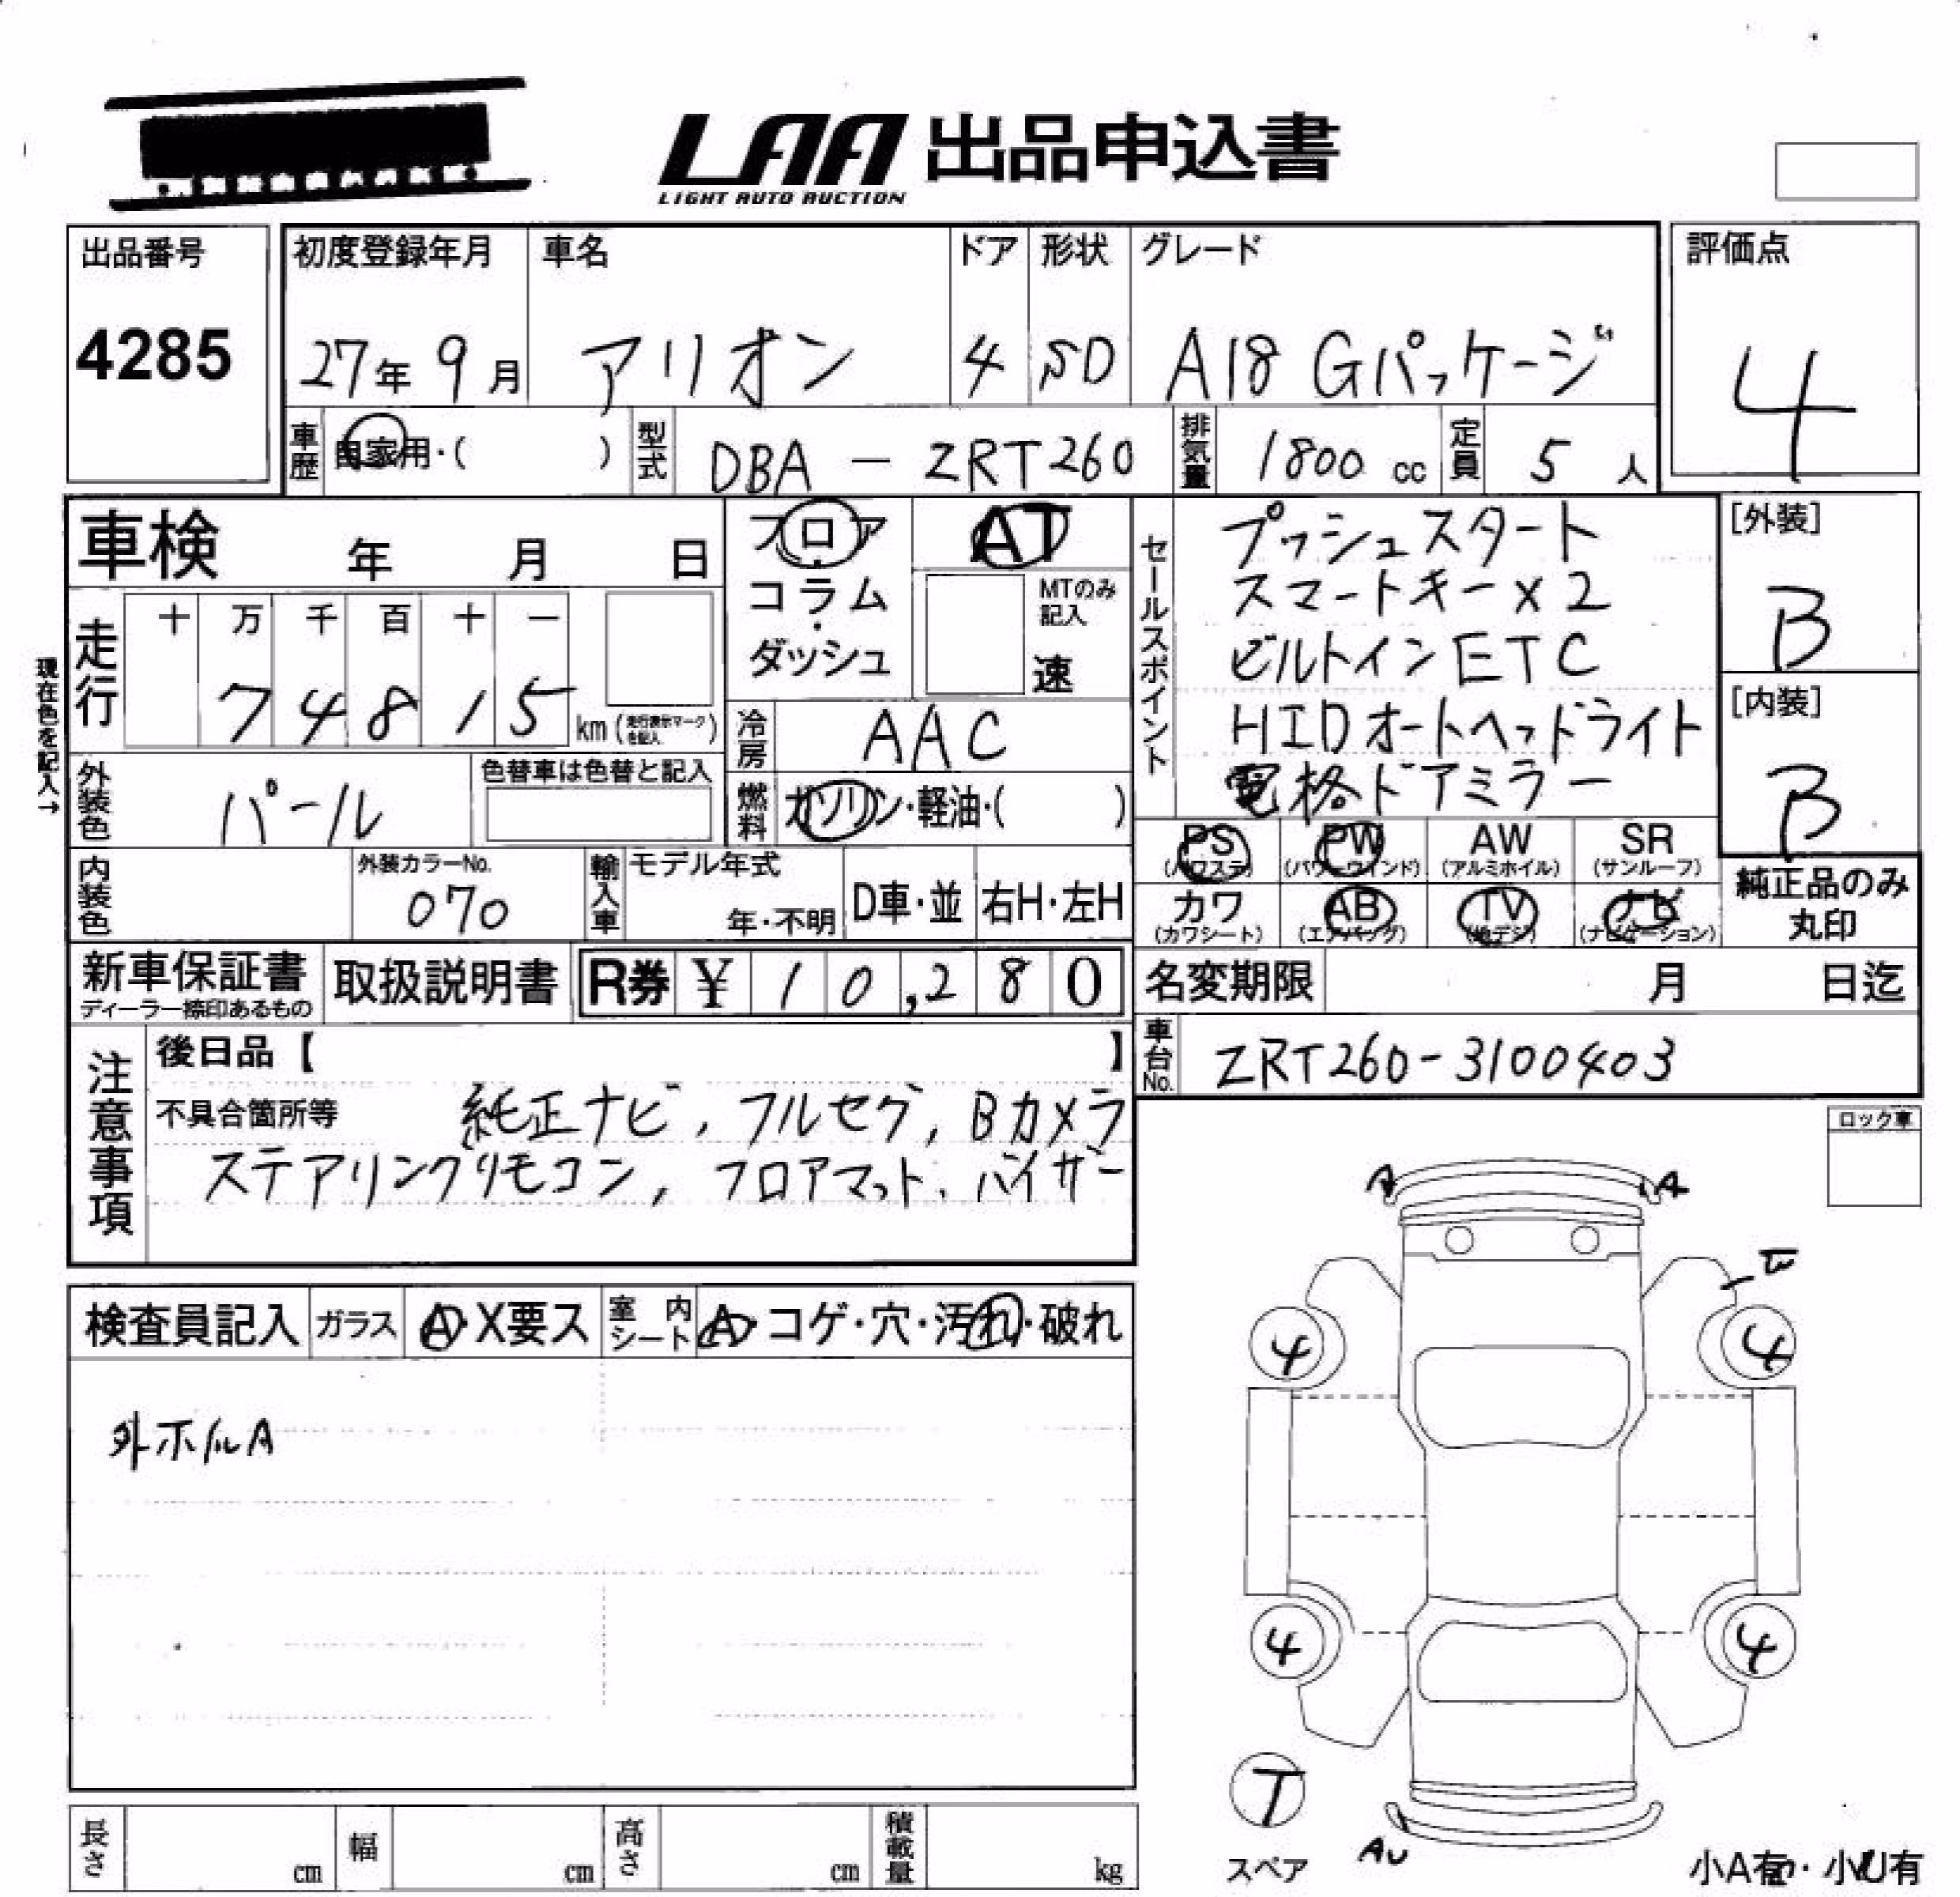 LAA 出品申込書
LIGHT AUTO AUCTION
出品番号
4285
初度登録年月
27年 9月
車名
アリオン
ドア
4
形状
SD
グレード
A18 Gパッケージ
評価点
4
車歴 自家用・( )
型式 DBA - ZRT260
排気量 1800 cc
定員 5 人
車検 年 月 日
フロア
・
コラム
・
ダッシュ
AT
MTのみ
記入
速
セールスポイント
プッシュスタート
スマートキー×2
ビルトインETC
HIDオートヘッドライト
電格ドアミラー
[外装]
B
[内装]
B
現在色を記入→
走行
十 万 千 百 十 一
7 4 8 1 5 km (走行表示マークを記入)
冷房 AAC
外装色 パール
色替車は色替と記入
燃料 ガソリン・軽油・( )
PS
(パワステ)
PW
(パワーウインド)
AW
(アルミホイル)
SR
(サンルーフ)
カワ
(カワシート)
AB
(エアバッグ)
TV
(地デジ)
ナビ
(ナビゲーション)
純正品のみ
丸印
内装色
外装カラーNo.
070
輸入車
モデル年式
年・不明
D車・並
右H・左H
新車保証書
ディーラー捺印あるもの
取扱説明書
R券 ¥ 10,280
名変期限 月 日迄
車台No. ZRT260-3100403
注意事項
後日品【 】
不具合箇所等 純正ナビ, フルセグ, Bカメラ
ステアリングリモコン, フロアマット, バイザー
ロック車
検査員記入
ガラス A・X要ス
室内シート A・コゲ・穴・汚れ・破れ
外ホイルA
A A
4 4
4 4
T
スペア
AU
小A有・小U有
長さ cm
幅 cm
高さ cm
積載量 kg